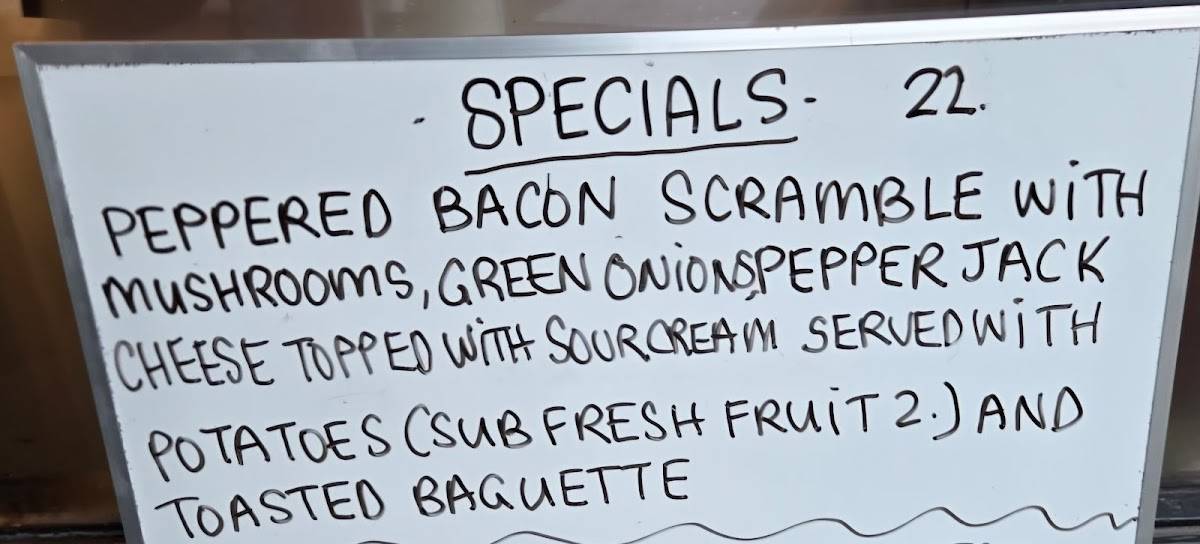 - SPECIALS - 22.
PEPPERED BACON SCRAMBLE WiTH
MUSHROOMS, GREEN ONiONS, PEPPER JACK
CHEESE TOPPED WiTH SOUR CREAM SERVED WiTH
POTATOES (SUB FRESH FRUiT 2.) AND
TOASTED BAGUETTE